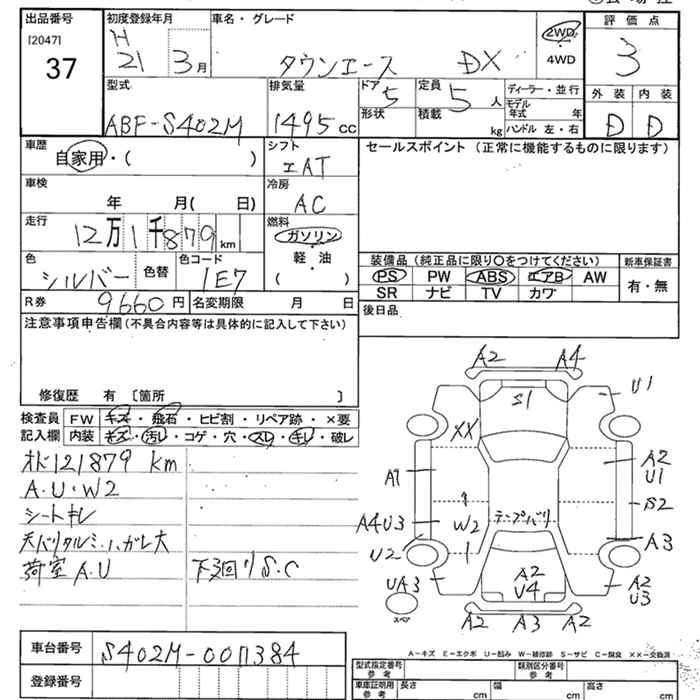 出品番号
[2047]
37
初度登録年月
H
21 3月
車名・グレード
タウンエース DX
2WD
4WD
評価点
3
型式
ABF-S402M
排気量
1495cc
ドア
5
形状
定員
5人
積載
kg
ディーラー・並行
モデル年式 年
ハンドル 左・右
外装 内装
D D
車歴
自家用・( )
シフト
AT
セールスポイント (正常に機能するものに限ります)
車検
年 月( 日)
冷房
AC
走行
12万1千879km
燃料
ガソリン
軽・油
( )
色
シルバー
色替
色コード
1E7
装備品(純正品に限り○をつけてください)
新車保証書
PS PW ABS エアB AW
SR ナビ TV カワ
有・無
R券
9660円
名変期限 月 日
後日品
注意事項申告欄(不具合内容等は具体的に記入して下さい)
修復歴 有 [箇所 ]
検査員記入欄
FW キズ・飛石・ヒビ割・リペア跡・×要
内装 キズ・汚レ・コゲ・穴・スレ・キレ・破レ
121879 km
A・U・W2
シートキレ
荷室A.U
下廻リS.C
A2 A4
S1
U1
XX
A1
A2
U1
S2
A4U3
W2
テープバリ
A3
U2
UA3
A2
U4
A2
U3
スペア
A2 A3 A2
A-キズ E-エクボ U-凹み W-補修跡 S-サビ C-腐食 ××-交換済
車台番号
S402M-0011384
登録番号
型式指定番号
参考
類別区分番号
参考
車庫証明用
参考
長さ cm
幅 cm
高さ cm